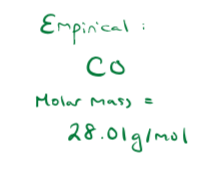 Empirical :
CO
Molar mass =
28.01g/mol